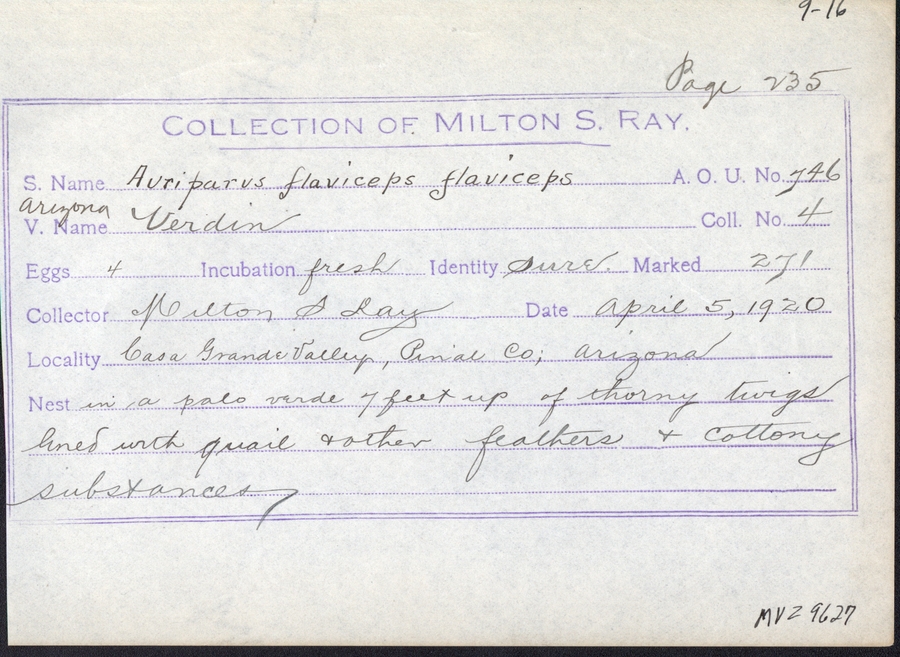 9-16
Page 235
COLLECTION OF MILTON S. RAY.
S. Name Auriparus flaviceps flaviceps A. O. U. No. 746
Arizona
V. Name Verdin Coll. No. 4
Eggs 4 Incubation fresh Identity Sure. Marked 271
Collector Milton S Ray Date April 5, 1920
Locality Casa Grande Valley, Pinal Co; Arizona
Nest in a palo verde 7 feet up of thorny twigs
lined with quail & other feathers & cottony
substances
MVZ 9627